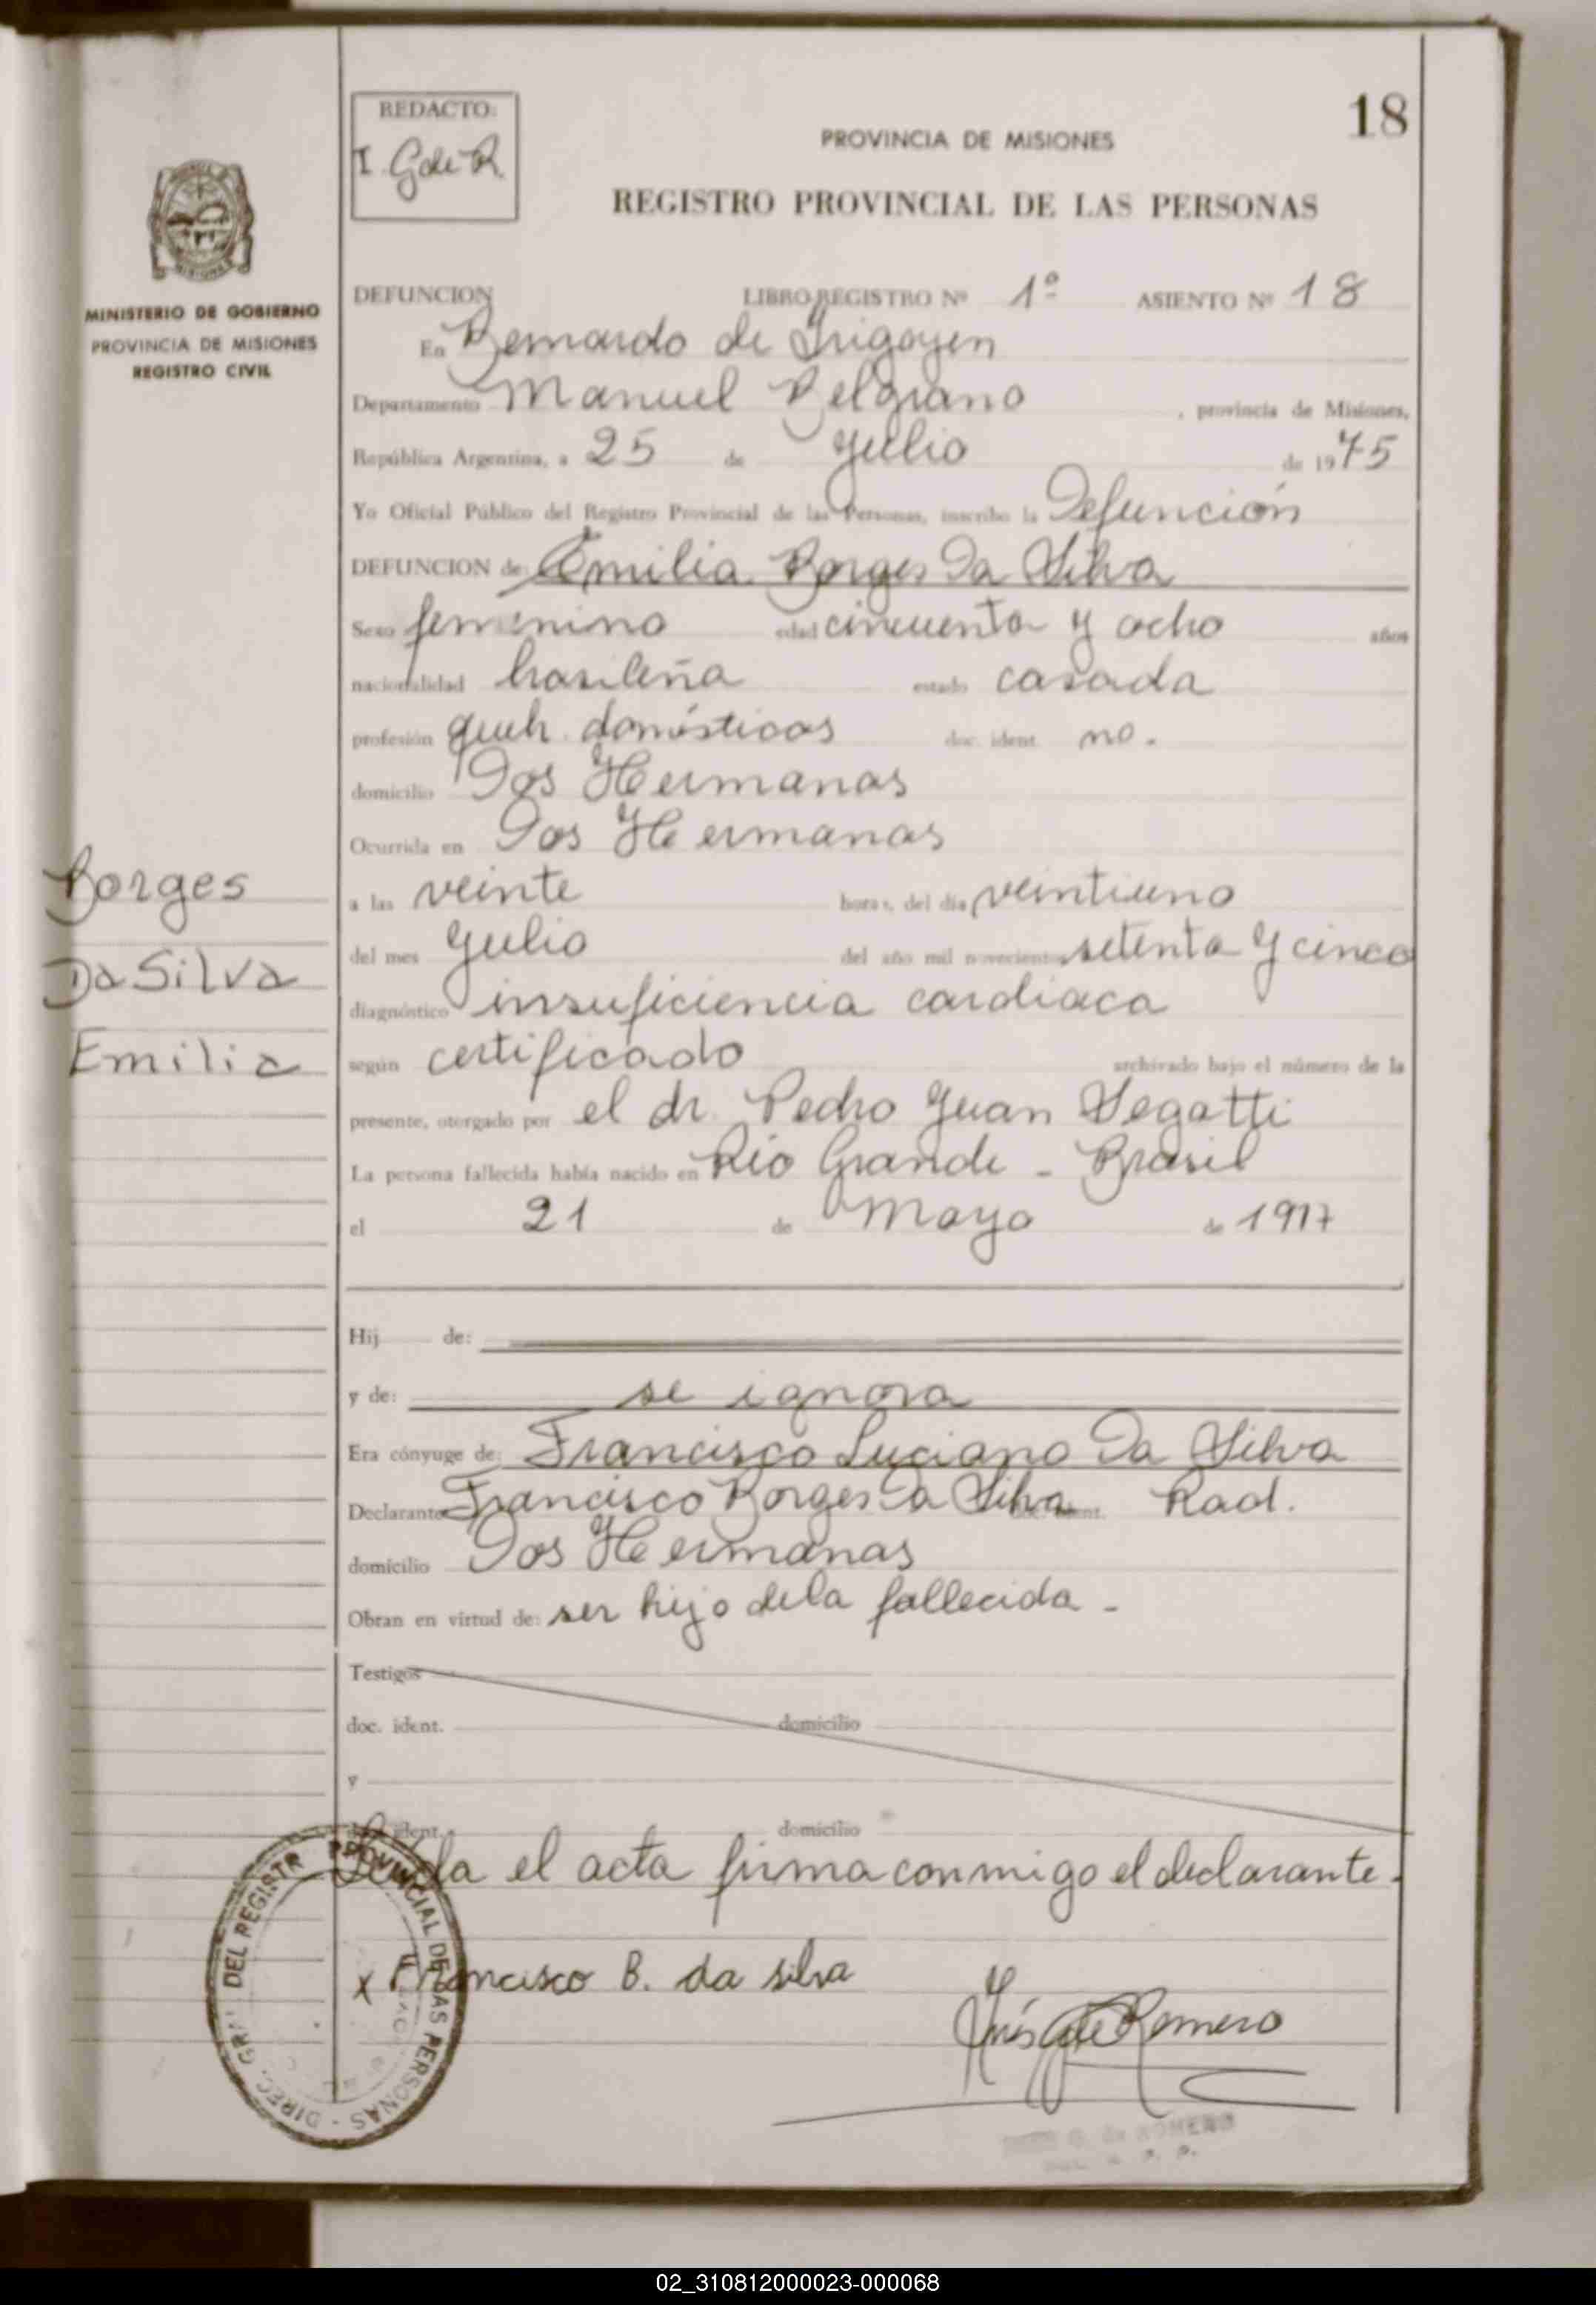 18
REDACTO:
I. G de R.
PROVINCIA DE MISIONES
REGISTRO PROVINCIAL DE LAS PERSONAS
MINISTERIO DE GOBIERNO
PROVINCIA DE MISIONES
REGISTRO CIVIL
DEFUNCION LIBRO REGISTRO Nº 1º ASIENTO Nº 18
En Bernardo de Irigoyen
Departamento Manuel Belgrano, provincia de Misiones,
República Argentina, a 25 de Julio de 1975
Yo Oficial Público del Registro Provincial de las Personas, inscribo la Defunción
DEFUNCION de: Emilia Borges Da Silva
Sexo femenino edad cincuenta y ocho años
nacionalidad brasileña estado casada
profesión queh. domésticos doc. ident. no.
domicilio Dos Hermanas
Ocurrida en Dos Hermanas
Borges
Da Silva
Emilia
a las veinte horas, del día veintiuno
del mes Julio del año mil novecientos setenta y cinco
diagnóstico insuficiencia cardiaca
según certificado archivado bajo el número de la
presente, otorgado por el dr. Pedro Juan Segatti
La persona fallecida había nacido en Río Grande - Brasil
el 21 de Mayo de 1917
Hij de:
y de: se ignora
Era cónyuge de: Francisco Luciano Da Silva
Declarante Francisco Borges Da Silva doc. ident. Rad.
domicilio Dos Hermanas
Obran en virtud de: ser hijo de la fallecida -
Testigos
doc. ident. domicilio
y
doc. ident. domicilio
Leída el acta firma conmigo el declarante.
x Francisco B. da silva
Inés G de Romero
DIREC. GRAL. DEL REGISTR PROVINCIAL DE LAS PERSONAS -
G. de ROMERO
02_310812000023-000068